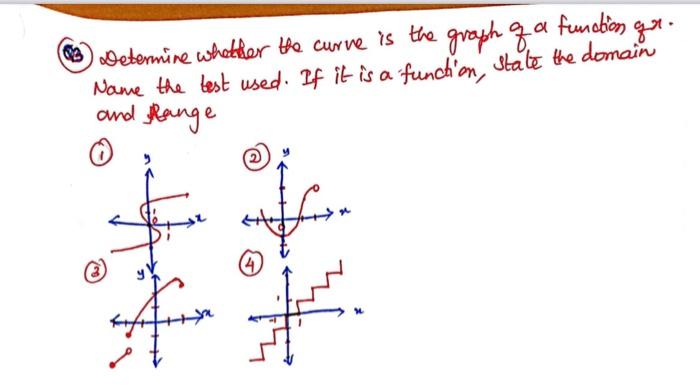 Q3 Determine whether the curve is the graph of a function of x.
Name the test used. If it is a function, state the domain
and Range
1 y
x
2 y
x
3 y
x
4
x